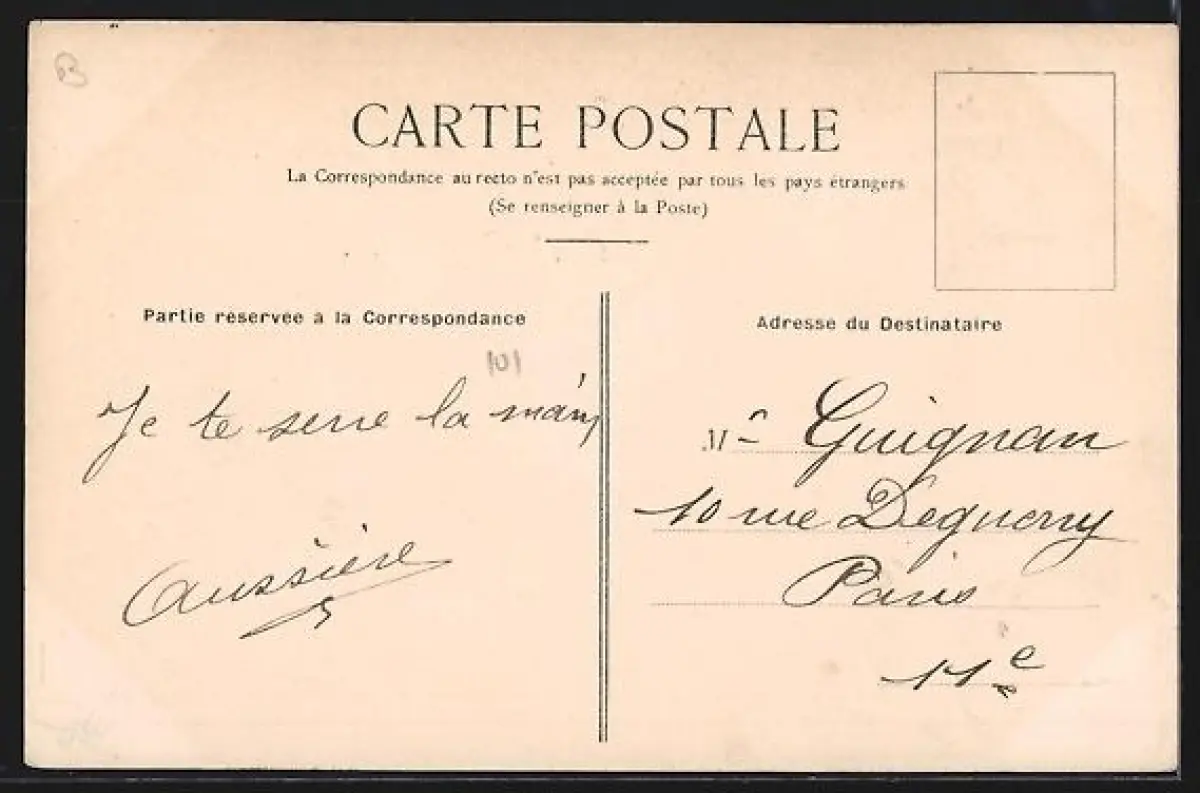 63
CARTE POSTALE
La Correspondance au recto n'est pas acceptée par tous les pays étrangers
(Se renseigner à la Poste)
Partie réservée à la Correspondance
101
Je te serre la main
Aussière
Adresse du Destinataire
Mr Guignan
10 rue Deguerry
Paris
11e